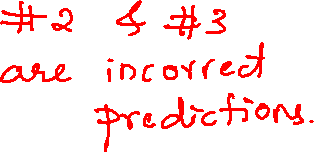 #2 & #3
are incorrect
predictions.